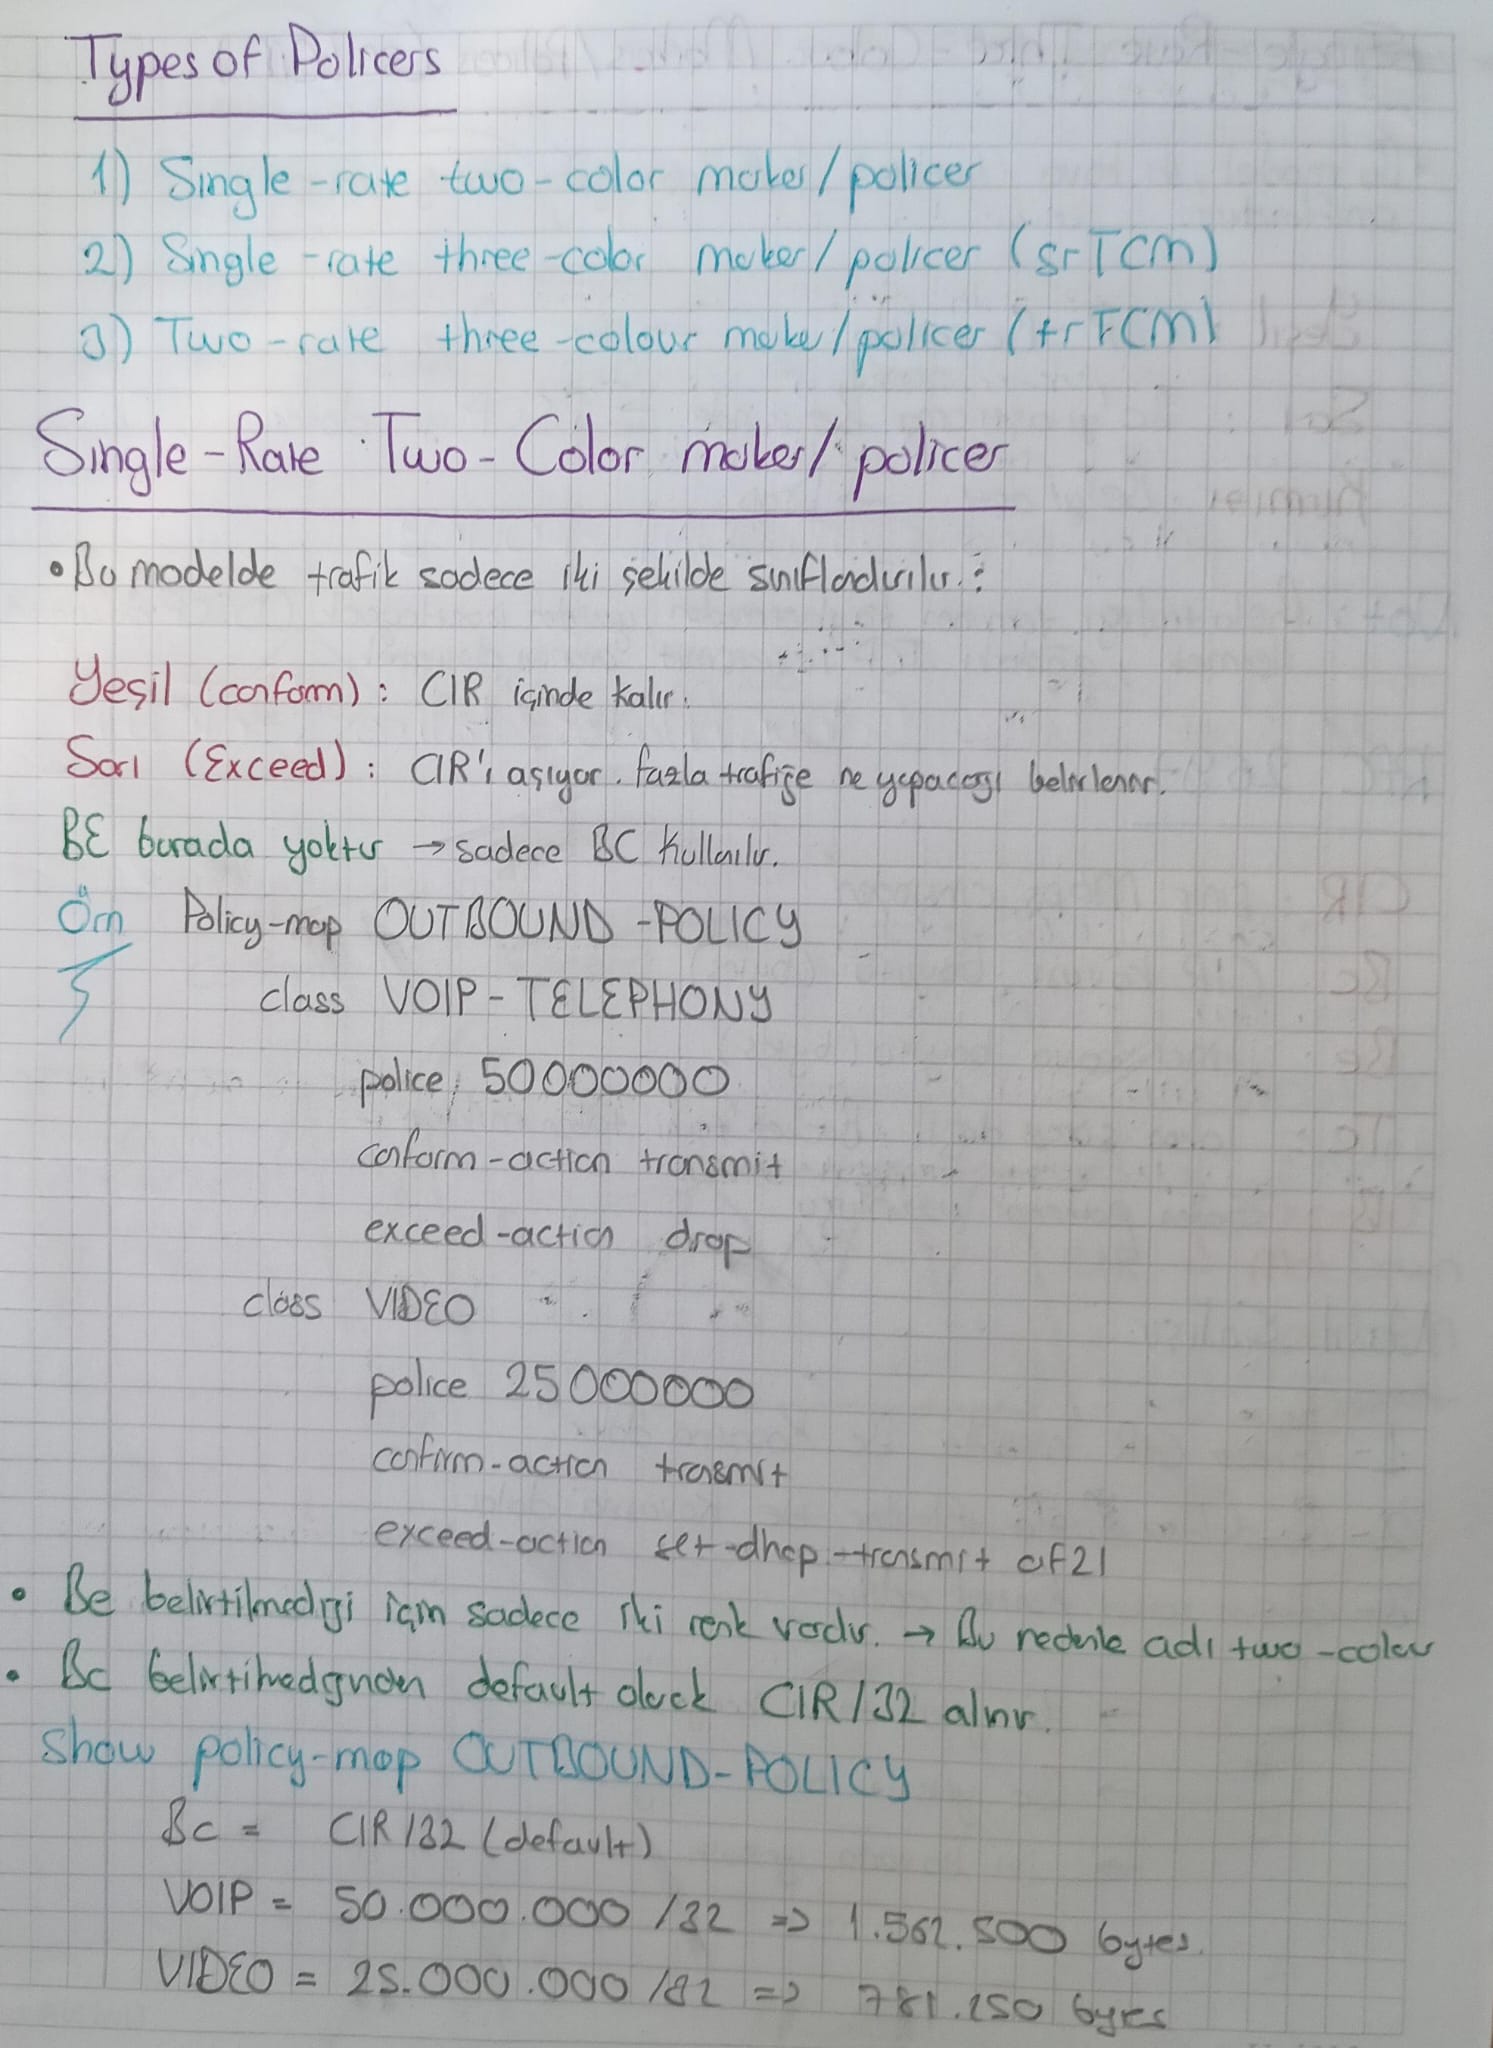 Types of Policers
1) Single-rate two-color maker/policer
2) Single-rate three-color maker/policer (srTCM)
3) Two-rate three-colour maker/policer (trTCM)
Single-Rate Two-Color maker/policer
• Bu modelde trafik sadece iki şekilde sınıflandırılır.:
Yeşil (conform): CIR içinde kalır.
Sarı (Exceed): CIR'ı aşıyor. fazla trafiğe ne yapacağı belirlenir.
BE burada yoktur → sadece BC kullanılır.
Örn Policy-map OUTBOUND-POLICY
class VOIP-TELEPHONY
police 50000000
conform-action transmit
exceed-action drop
class VIDEO
police 25000000
confirm-action transmit
exceed-action set-dhcp-transmit af21
• Be belirtilmediği için sadece iki renk vardır. → Bu nedenle adı two-color
• Bc belirtilmediğinden default olarak CIR/32 alınır.
Show policy-map OUTBOUND-POLICY
Bc = CIR/32 (default)
VOIP = 50.000.000 /32 => 1.562.500 bytes.
VIDEO = 25.000.000 /32 => 781.250 bytes